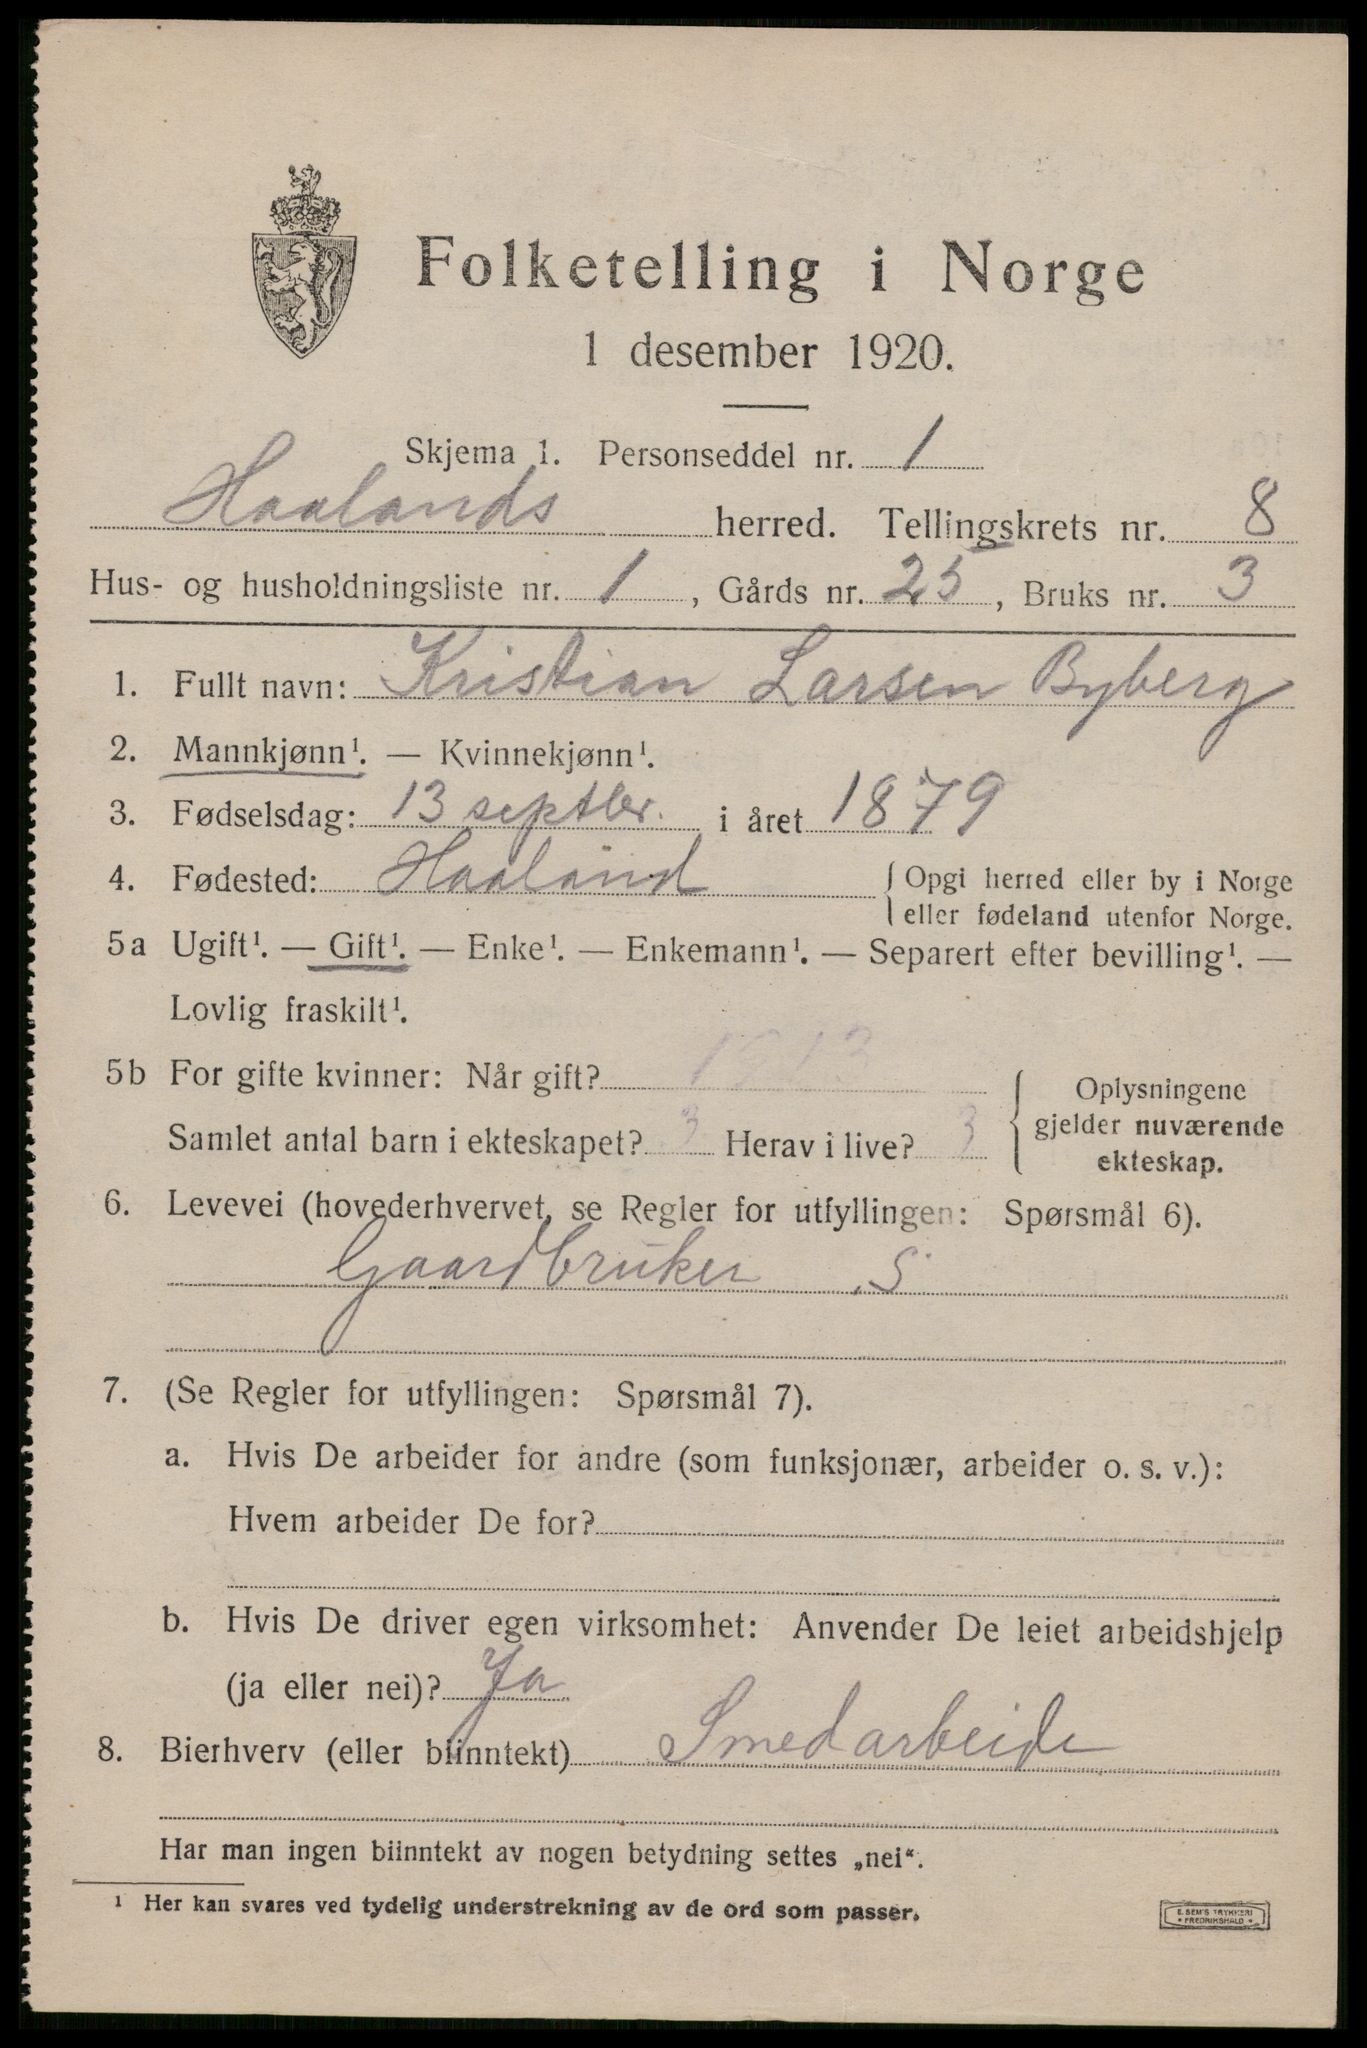 Folketelling i Norge
1 desember 1920.
Skjema 1. Personseddel nr. 1
Haalands herred. Tellingskrets nr. 8
Hus- og husholdningsliste nr. 1, Gårds nr. 25, Bruks nr. 3
1. Fullt navn: Kristian Larsen Byberg
2. Mannkjønn¹. — Kvinnekjønn¹.
3. Fødselsdag: 13 septbr. i året 1879
4. Fødested: Haaland { Opgi herred eller by i Norge
eller fødeland utenfor Norge.
5a Ugift¹. — Gift¹. — Enke¹. — Enkemann¹. — Separert efter bevilling¹. —
Lovlig fraskilt¹.
5b For gifte kvinner: Når gift? 1913
Samlet antal barn i ekteskapet? 3 Herav i live? 3
{ Oplysningene
gjelder nuværende
ekteskap.
6. Levevei (hovederhvervet, se Regler for utfyllingen: Spørsmål 6).
Gaardbruker S
7. (Se Regler for utfyllingen: Spørsmål 7).
a. Hvis De arbeider for andre (som funksjonær, arbeider o. s. v.):
Hvem arbeider De for?
b. Hvis De driver egen virksomhet: Anvender De leiet arbeidshjelp
(ja eller nei)? Ja
8. Bierhverv (eller biinntekt) Smedarbeide
Har man ingen biinntekt av nogen betydning settes „nei“.
¹ Her kan svares ved tydelig understrekning av de ord som passer.
E. SEM'S TRYKKERI
• FREDRIKSHALD •